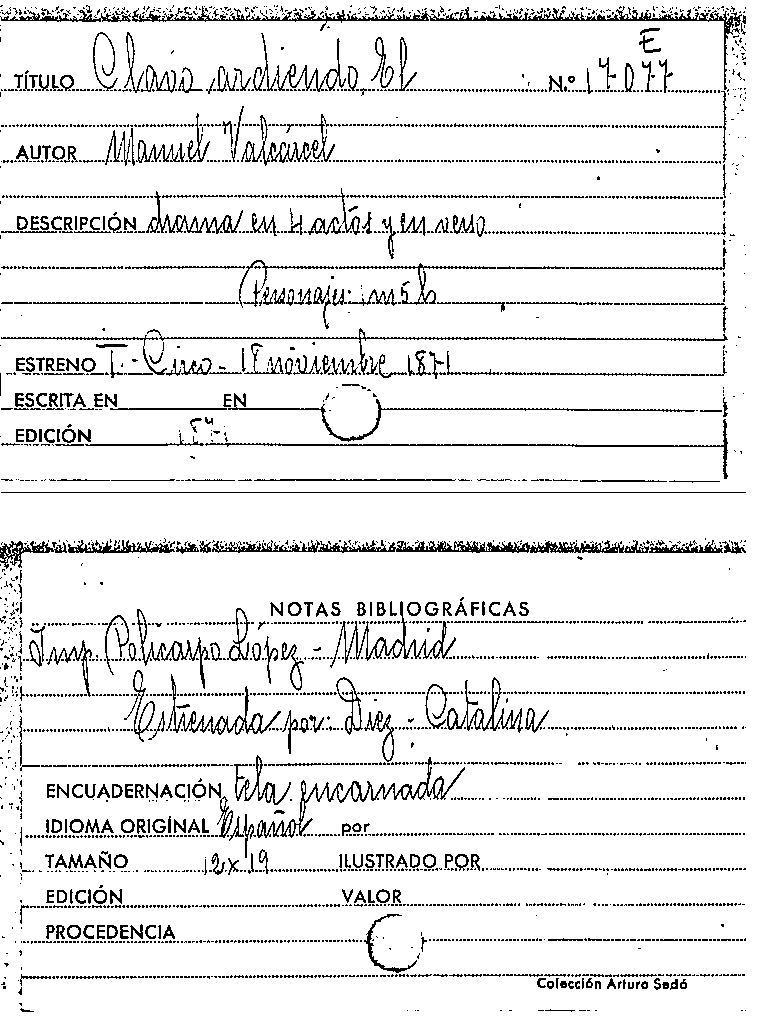 E
TÍTULO Clavo ardiendo, El N.º 17.077
AUTOR Manuel Valcárcel
DESCRIPCIÓN drama en 4 actos y en verso
Personajes: 1m 5h
ESTRENO T.- Circo - 18 noviembre 1871
ESCRITA EN EN
EDICIÓN 1871
NOTAS BIBLIOGRÁFICAS
Imp. Policarpo López - Madrid
Estrenada por: Diez - Catalina
ENCUADERNACIÓN tela encarnada
IDIOMA ORIGINAL Español por
TAMAÑO 12x19 ILUSTRADO POR
EDICIÓN VALOR
PROCEDENCIA
Colección Arturo Sedó